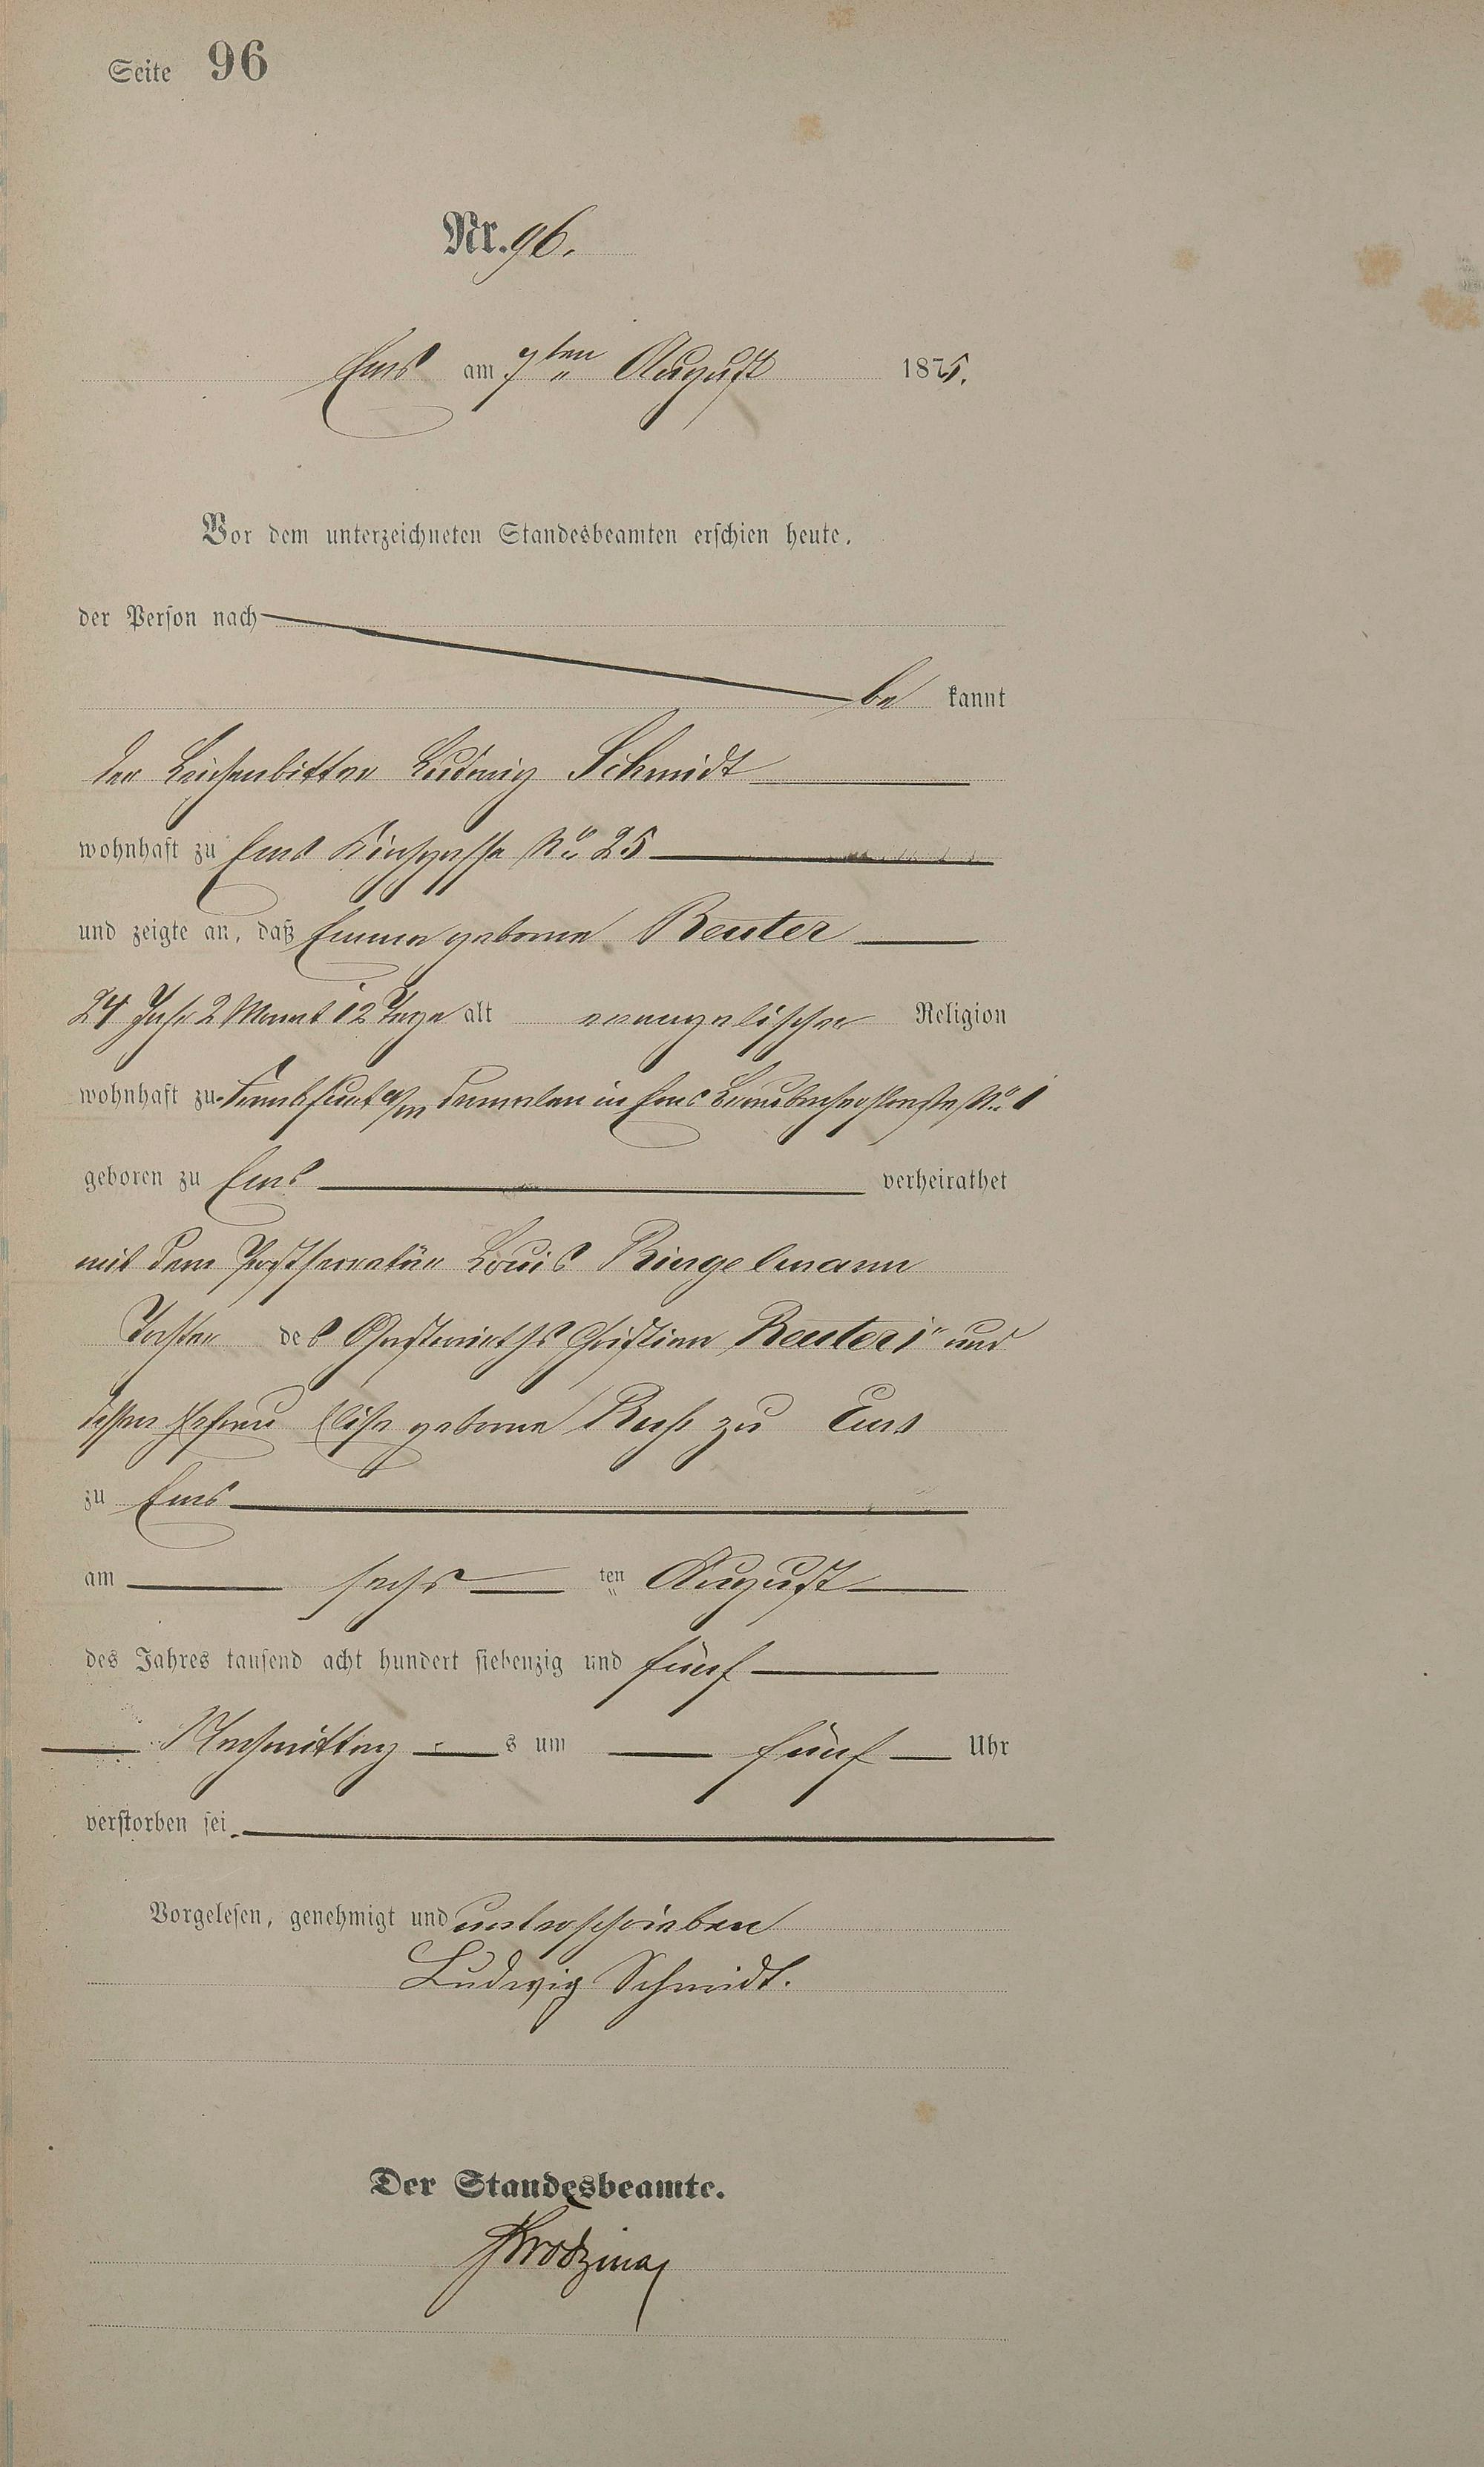 Seite 96
Nr. 96.
Ems am 7ten August 1875.
Vor dem unterzeichneten Standesbeamten erschien heute,
der Person nach
be kannt
der Leichenbitter Ludwig Schmidt
wohnhaft zu Ems Kirchgasse No 25
und zeigte an, daß Emma geborene Reuter
24 Jahr 2 Monat 12 Tage alt evangelischer Religion
wohnhaft zu Frankfurt a/m in Ems No 1
geboren zu Ems verheirathet
mit dem Postsecretär Louis Ringelmann
Tochter des Gastwirths Christian Reuter und
dessen Ehefrau Elise geborne zu Ems
zu Ems
am sechs ten August
des Jahres tausend acht hundert siebenzig und fünf
Nachmittag s um fünf Uhr
verstorben sei.
Vorgelesen, genehmigt und unterschrieben
Ludwig Schmidt.
Der Standesbeamte.